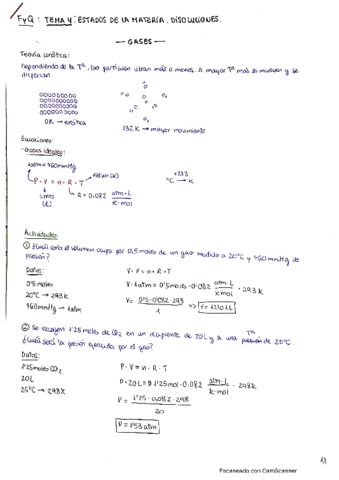 FyQ: TEMA 4: ESTADOS DE LA MATERIA. DISOLUCIONES.
— GASES —
Teoría cinética:
Dependiendo de la Tª, las partículas vibran más o menos. A mayor Tª más se mueven y se dispersan
0K → estática
132K → mayor movimiento
Ecuaciones:
- Gases ideales:
1atm = 760mmHg
Kelvin (K)
+273
ºC → K
P · V = n · R · T
Litros (L)
R = 0,082 atm·L / K·mol
Actividades:
① ¿Cuál será el volumen ocupa por 0,5 moles de un gas medido a 20ºC y 760mmHg de presión?
Datos:
0'5 moles
20ºC → 293K
760mmHg → 1atm
V · P = n · R · T
V · 1atm = 0'5 moles · 0'082 atm·L / K·mol · 293K
V = 0'5 · 0'082 · 293 / 1 => V = 12'01L
② Se recogen 1'25 moles de CO2 en un recipiente de 20L y a una Tª de 25ºC. ¿Cuál será la presión ejercida por el gas?
Datos:
1'25 moles CO2
20L
25ºC → 298K
P · V = n · R · T
P · 20L = 1'25mol · 0,082 atm·L / K·mol · 298K
P = 1'25 · 0,082 · 298 / 20
P = 1'53 atm
Escaneado con CamScanner